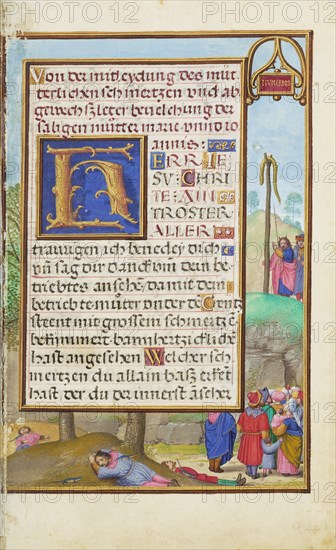 Von der mitleydung des müt
terlichen schmertzen vnd ab
gewechszleger bevelchung der
säligen mütter marie vnnd io
annis:
H ERR IE
SV CHRI
TE AIN
TROSTER
ALLER
traurigen ich benedey dich
vn̄ sag dir danck vm̄ dein be
triebtes ansehē, da mit dein
betriebte müter vnder de Creutz
steent mit grossem schmertzē
bekim̄ert barmhertziklichē
hast angesehen Welcher sch
mertzen du allain hast erken̄t
hast der du der innerst ansehe